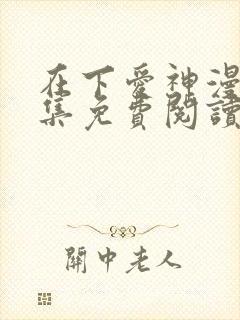 在下愛神漫
集免費閱讀
關中老人